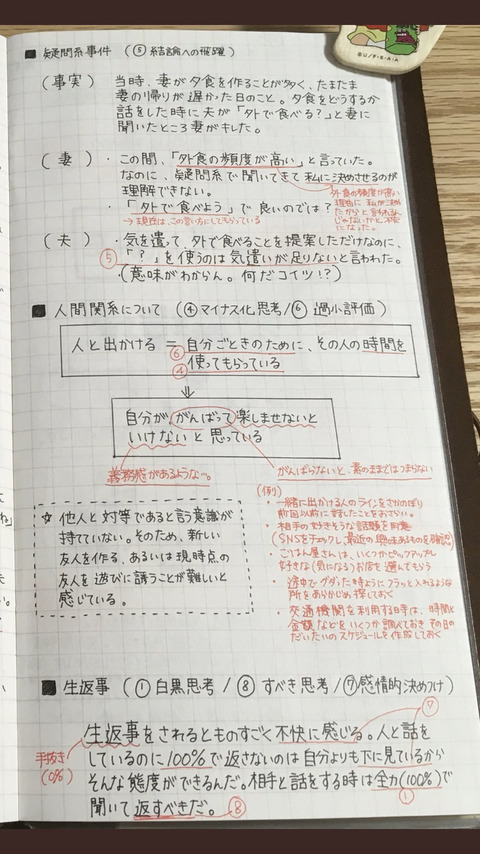 ©U/F・E・A・A
■ 疑問系事件 (⑤ 結論への飛躍)
(事実) 当時、妻が夕食を作ることが多く、たまたま
妻の帰りが遅かった日のこと。夕食をどうするか
話をした時に夫が「外で食べる?」と妻に
聞いたところ妻がキレた。
(妻) ・この間、「外食の頻度が高い」と言っていた。
なのに、疑問系で聞いてきて私に決めさせるのが
理解できない。
・「外で食べよう」で良いのでは?
→現在は、この言い方にしてもらっている
外食の頻度が高い
理由に私が決め
たからと言われるん
じゃないかと不安
になった。
(夫) ・気を遣って、外で食べることを提案しただけなのに、
⑤ 「?」を使うのは気遣いが足りないと言われた。
(意味がわからん。何だコイツ!?)
■ 人間関係について (④マイナス化思考/⑥ 過小評価)
人と出かける = 自分ごときのために、その人の時間を
⑥
④ 使ってもらっている
⇓
自分が、がんばって楽しませないと
いけないと思っている
義務感があるような…。
がんばらないと、素のままではつまらない
(例)
・一緒に出かける人のラインをさかのぼり
前回以前に話したことをおさらい。
・相手の好きそうな話題を用意
(SNSをチェックし、最近の興味あるものを確認)
・ごはん屋さんは、いくつかピックアップし
好きな(気になる)お店を選んでもらう
・途中でグダった時ように フラッと入れるような
所をあらかじめ探しておく
・交通機関を利用する時は、時間と
金額などをいくつか調べておき その日の
だいたいのスケジュールを作成しておく
☆ 他人と対等であると言う意識が
持てていない。そのため、新しい
友人を作る、あるいは現時点の
友人を遊びに誘うことが難しいと
感じている。
■ 生返事 (① 白黒思考 / ⑧ すべき思考 /⑦感情的決めつけ)
⑦
生返事をされるとものすごく不快に感じる。人と話を
手抜き
(0%)
しているのに100%で返さないのは自分よりも下に見ているから
そんな態度ができるんだ。相手と話をする時は全力(100%)で
①
聞いて返すべきだ。 ⑧